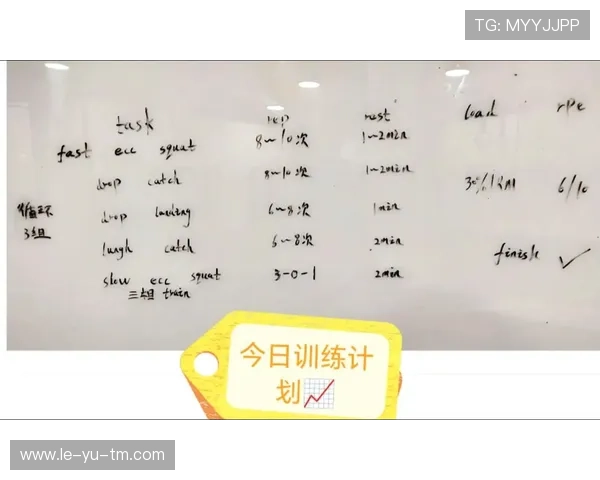 TG: MYYJJPP
task rep rest load rpe
fast ecc squat 8~10次 1~2min
drop catch 8~10次 1~2min 30%1RM 6/10
循环
3组
drop landing 6~8次 1min
lungh catch 6~8次 2min finish ✓
slow ecc squat 3-0-1 2min
三组 train
今日训练计
划📈
www.le-yu-tm.com